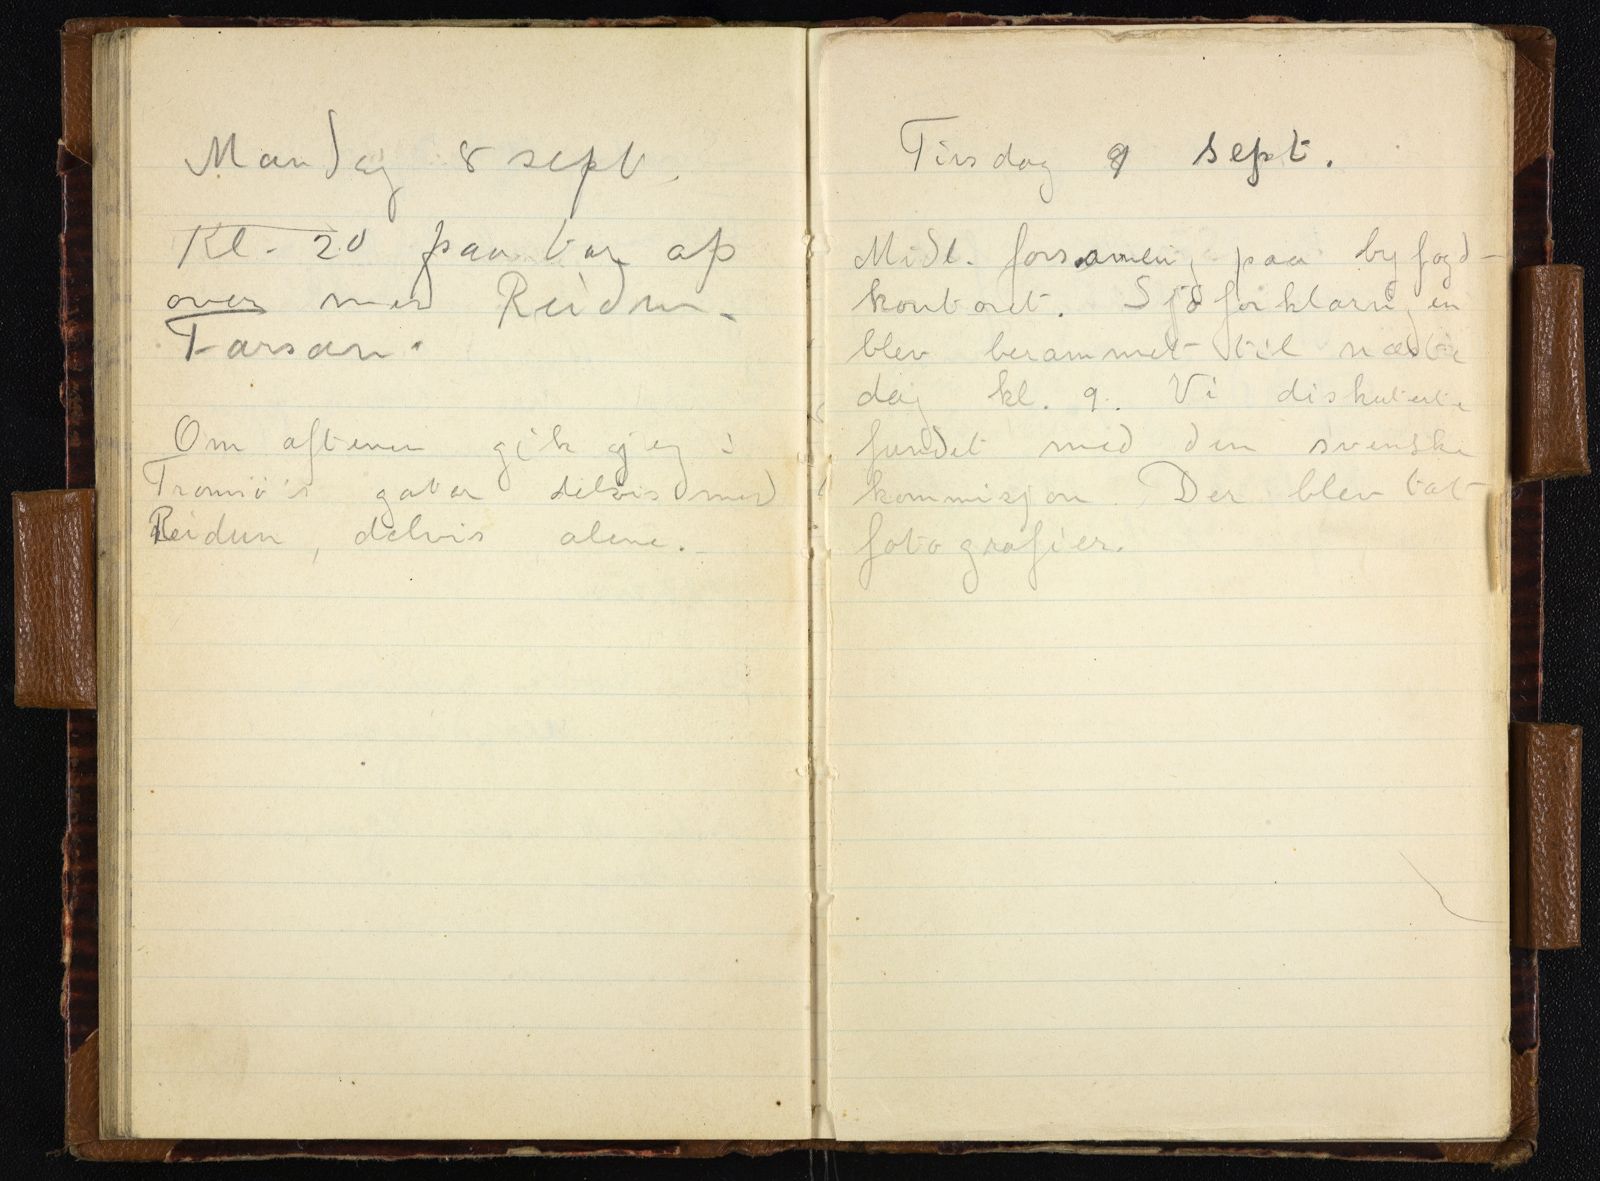 Mandag 8 sept.
Kl. 20 paa tur op
over med Reidun.
Tarsan.
Om aftenen gik jeg i
Tromsö's gater delvis med
Reidun, delvis alene.
Tirsdag 9 sept.
Midl. forsamling paa byfogd-
kontoret. Sjöforklaringen
blev berammet til næste
dag kl. 9. Vi diskuterte
fundet med den svenske
kommisjon. Der blev tat
fotografier.